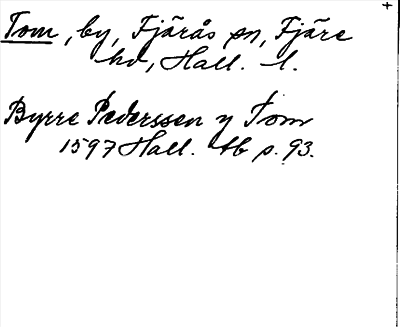 Tom, by, Fjärås sn, Fjäre
hd, Hall. l.
Byrre Pederssen y Tom
1597 Hall. tb p. 93.